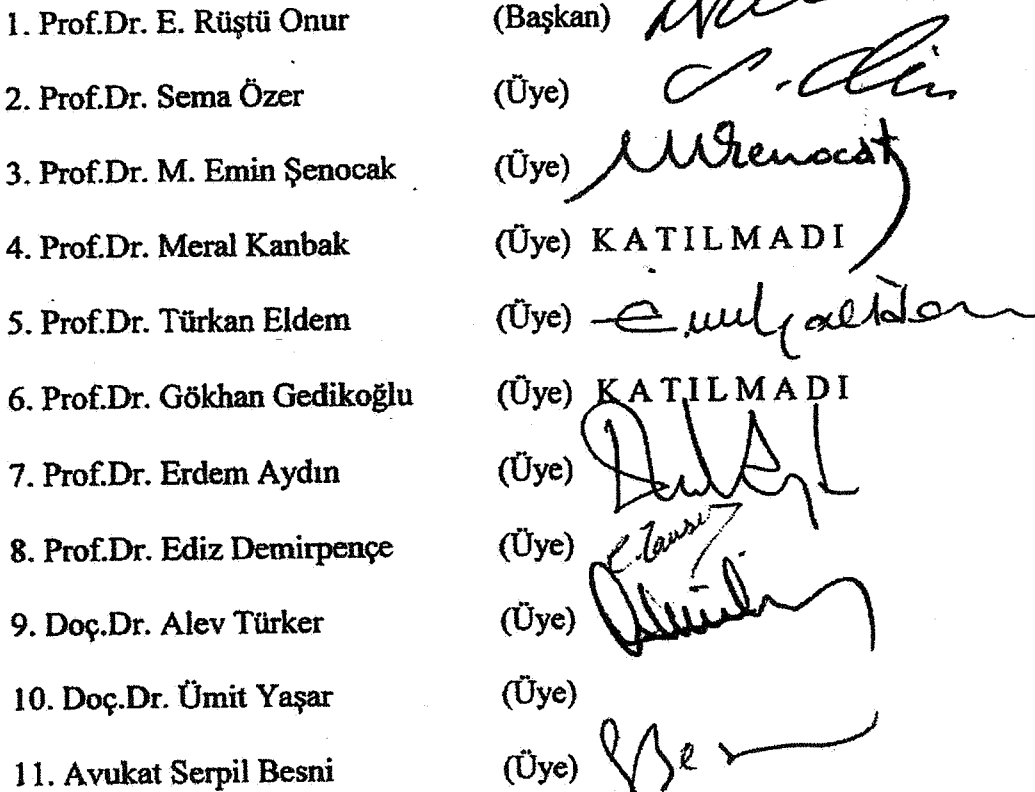 1. Prof.Dr. E. Rüştü Onur (Başkan)
2. Prof.Dr. Sema Özer (Üye)
3. Prof.Dr. M. Emin Şenocak (Üye)
4. Prof.Dr. Meral Kanbak (Üye) KATILMADI
5. Prof.Dr. Türkan Eldem (Üye)
6. Prof.Dr. Gökhan Gedikoğlu (Üye) KATILMADI
7. Prof.Dr. Erdem Aydın (Üye)
8. Prof.Dr. Ediz Demirpençe (Üye)
9. Doç.Dr. Alev Türker (Üye)
10. Doç.Dr. Ümit Yaşar (Üye)
11. Avukat Serpil Besni (Üye)